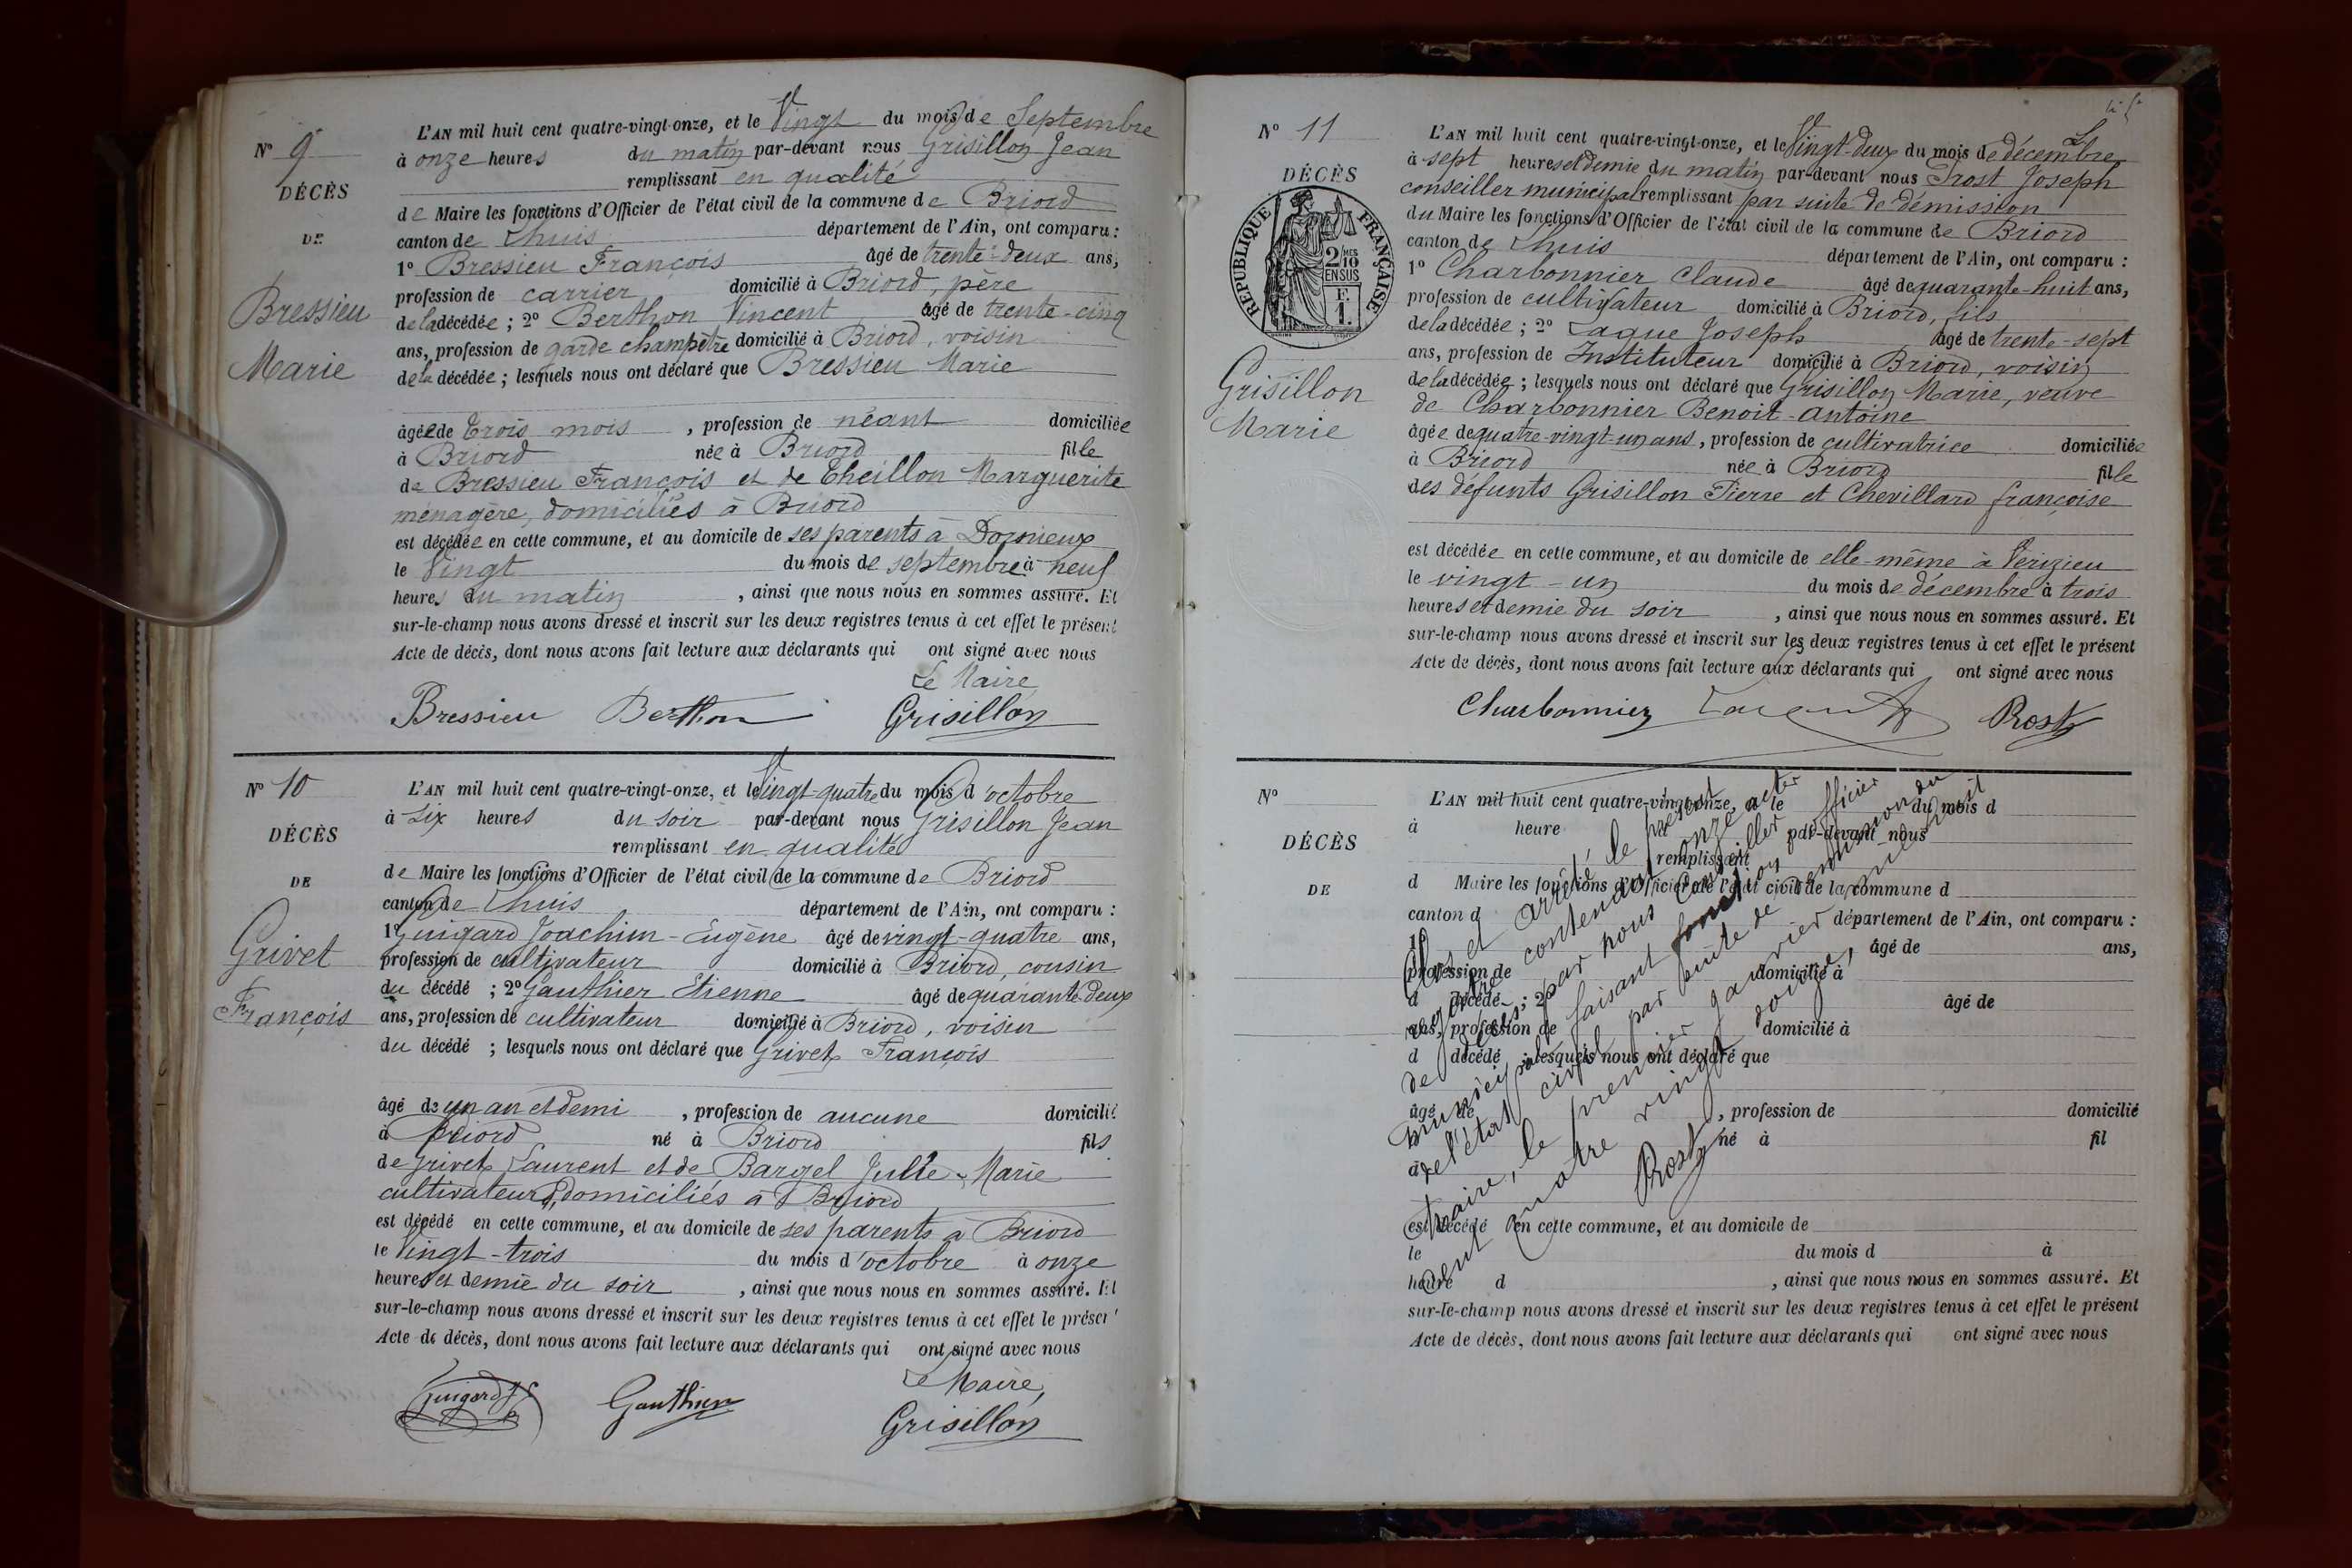 N° 9
DÉCÈS
DE
Bressieu
Marie
L'AN mil huit cent quatre-vingt-onze, et le Vingt du mois de Septembre
à onze heures du matin par-devant nous Grisillon Jean
remplissant en qualité
de Maire les fonctions d'Officier de l'état civil de la commune de Briord
canton de Lhuis département de l'Ain, ont comparu :
1° Bressieu François âgé de trente-deux ans,
profession de carrier domicilié à Briord, père
de la décédée ; 2° Berthon Vincent âgé de trente-cinq
ans, profession de garde champêtre domicilié à Briord, voisin
de la décédée ; lesquels nous ont déclaré que Bressieu Marie
âgée de trois mois , profession de néant domiciliée
à Briord née à Briord fille
de Bressieu François et de Theillon Marguerite
ménagère, domiciliés à Briord
est décédée en cette commune, et au domicile de ses parents à Dornieux
le Vingt du mois de septembre à neuf
heures du matin , ainsi que nous nous en sommes assuré. Et
sur-le-champ nous avons dressé et inscrit sur les deux registres tenus à cet effet le présent
Acte de décès, dont nous avons fait lecture aux déclarants qui ont signé avec nous
Le Maire
Bressieu Berthon Grisillon
N° 10
DÉCÈS
DE
Grivet
François
L'AN mil huit cent quatre-vingt-onze, et le Vingt-quatre du mois d'octobre
à six heures du soir par-devant nous Grisillon Jean
remplissant en qualité
de Maire les fonctions d'Officier de l'état civil de la commune de Briord
canton de Lhuis département de l'Ain, ont comparu :
1° Guigard Joachim-Eugène âgé de vingt-quatre ans,
profession de cultivateur domicilié à Briord, cousin
du décédé ; 2° Gauthier Etienne âgé de quarante-deux
ans, profession de cultivateur domicilié à Briord, voisin
du décédé ; lesquels nous ont déclaré que Grivet François
âgé de un an et demi , profession de aucune domicilié
à Briord né à Briord fils
de Grivet Laurent et de Bargel Julie-Marie
cultivateurs, domiciliés à Briord
est décédé en cette commune, et au domicile de ses parents à Briord
le Vingt-trois du mois d'octobre à onze
heures et demie du soir , ainsi que nous nous en sommes assuré. Et
sur-le-champ nous avons dressé et inscrit sur les deux registres tenus à cet effet le présent
Acte de décès, dont nous avons fait lecture aux déclarants qui ont signé avec nous
Le Maire,
Guigard Gauthier Grisillon
N° 11
DÉCÈS
RÉPUBLIQUE FRANÇAISE
2/10MES
EN SUS
F.
1.
Grisillon
Marie
L'AN mil huit cent quatre-vingt-onze, et le Vingt-deux du mois de décembre
à sept heures et demie du matin par-devant nous Prost Joseph
conseiller municipal remplissant par suite de démission
du Maire les fonctions d'Officier de l'état civil de la commune de Briord
canton de Lhuis département de l'Ain, ont comparu :
1° Charbonnier Claude âgé de quarante-huit ans,
profession de cultivateur domicilié à Briord, fils
de la décédée ; 2° Lague Joseph âgé de trente-sept
ans, profession de Instituteur domicilié à Briord, voisin
de la décédée ; lesquels nous ont déclaré que Grisillon Marie, veuve
de Charbonnier Benoit-Antoine
âgée de quatre-vingt-un ans, profession de cultivatrice domiciliée
à Briord née à Briord fille
des défunts Grisillon Pierre et Chevillard françoise
est décédée en cette commune, et au domicile de elle-même à Vérizieu
le vingt-un du mois de décembre à trois
heures et demie du soir , ainsi que nous nous en sommes assuré. Et
sur-le-champ nous avons dressé et inscrit sur les deux registres tenus à cet effet le présent
Acte de décès, dont nous avons fait lecture aux déclarants qui ont signé avec nous
Charbonnier Prost
N°
DÉCÈS
DE
L'AN mil huit cent quatre-vingt-onze, et le du mois d
à heure par-devant nous
remplissant
d Maire les fonctions d'Officier de l'état civil de la commune d
canton d département de l'Ain, ont comparu :
1° âgé de ans,
profession de domicilié à
d décédé ; 2° âgé de
ans, profession de domicilié à
d décédé ; lesquels nous ont déclaré que
âgé de , profession de domicilié
à né à fil
est décédé en cette commune, et au domicile de
le du mois d à
heure d , ainsi que nous nous en sommes assuré. Et
sur-le-champ nous avons dressé et inscrit sur les deux registres tenus à cet effet le présent
Acte de décès, dont nous avons fait lecture aux déclarants qui ont signé avec nous
Clos et arrêté le présent
registre contenant onze actes
de décès, par nous Conseiller
municipal faisant fonction d'officier
de l'état civil par suite de démission du
maire, le premier janvier mil huit
cent quatre vingt douze,
Prost